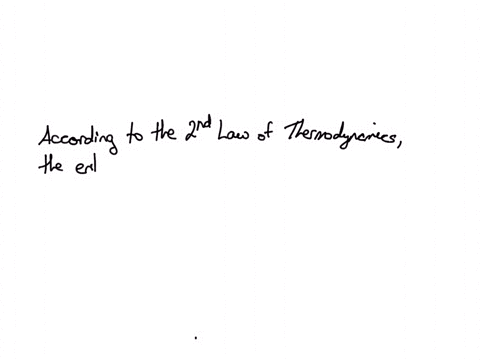 According to the 2nd Law of Thermodynamics,
the enl